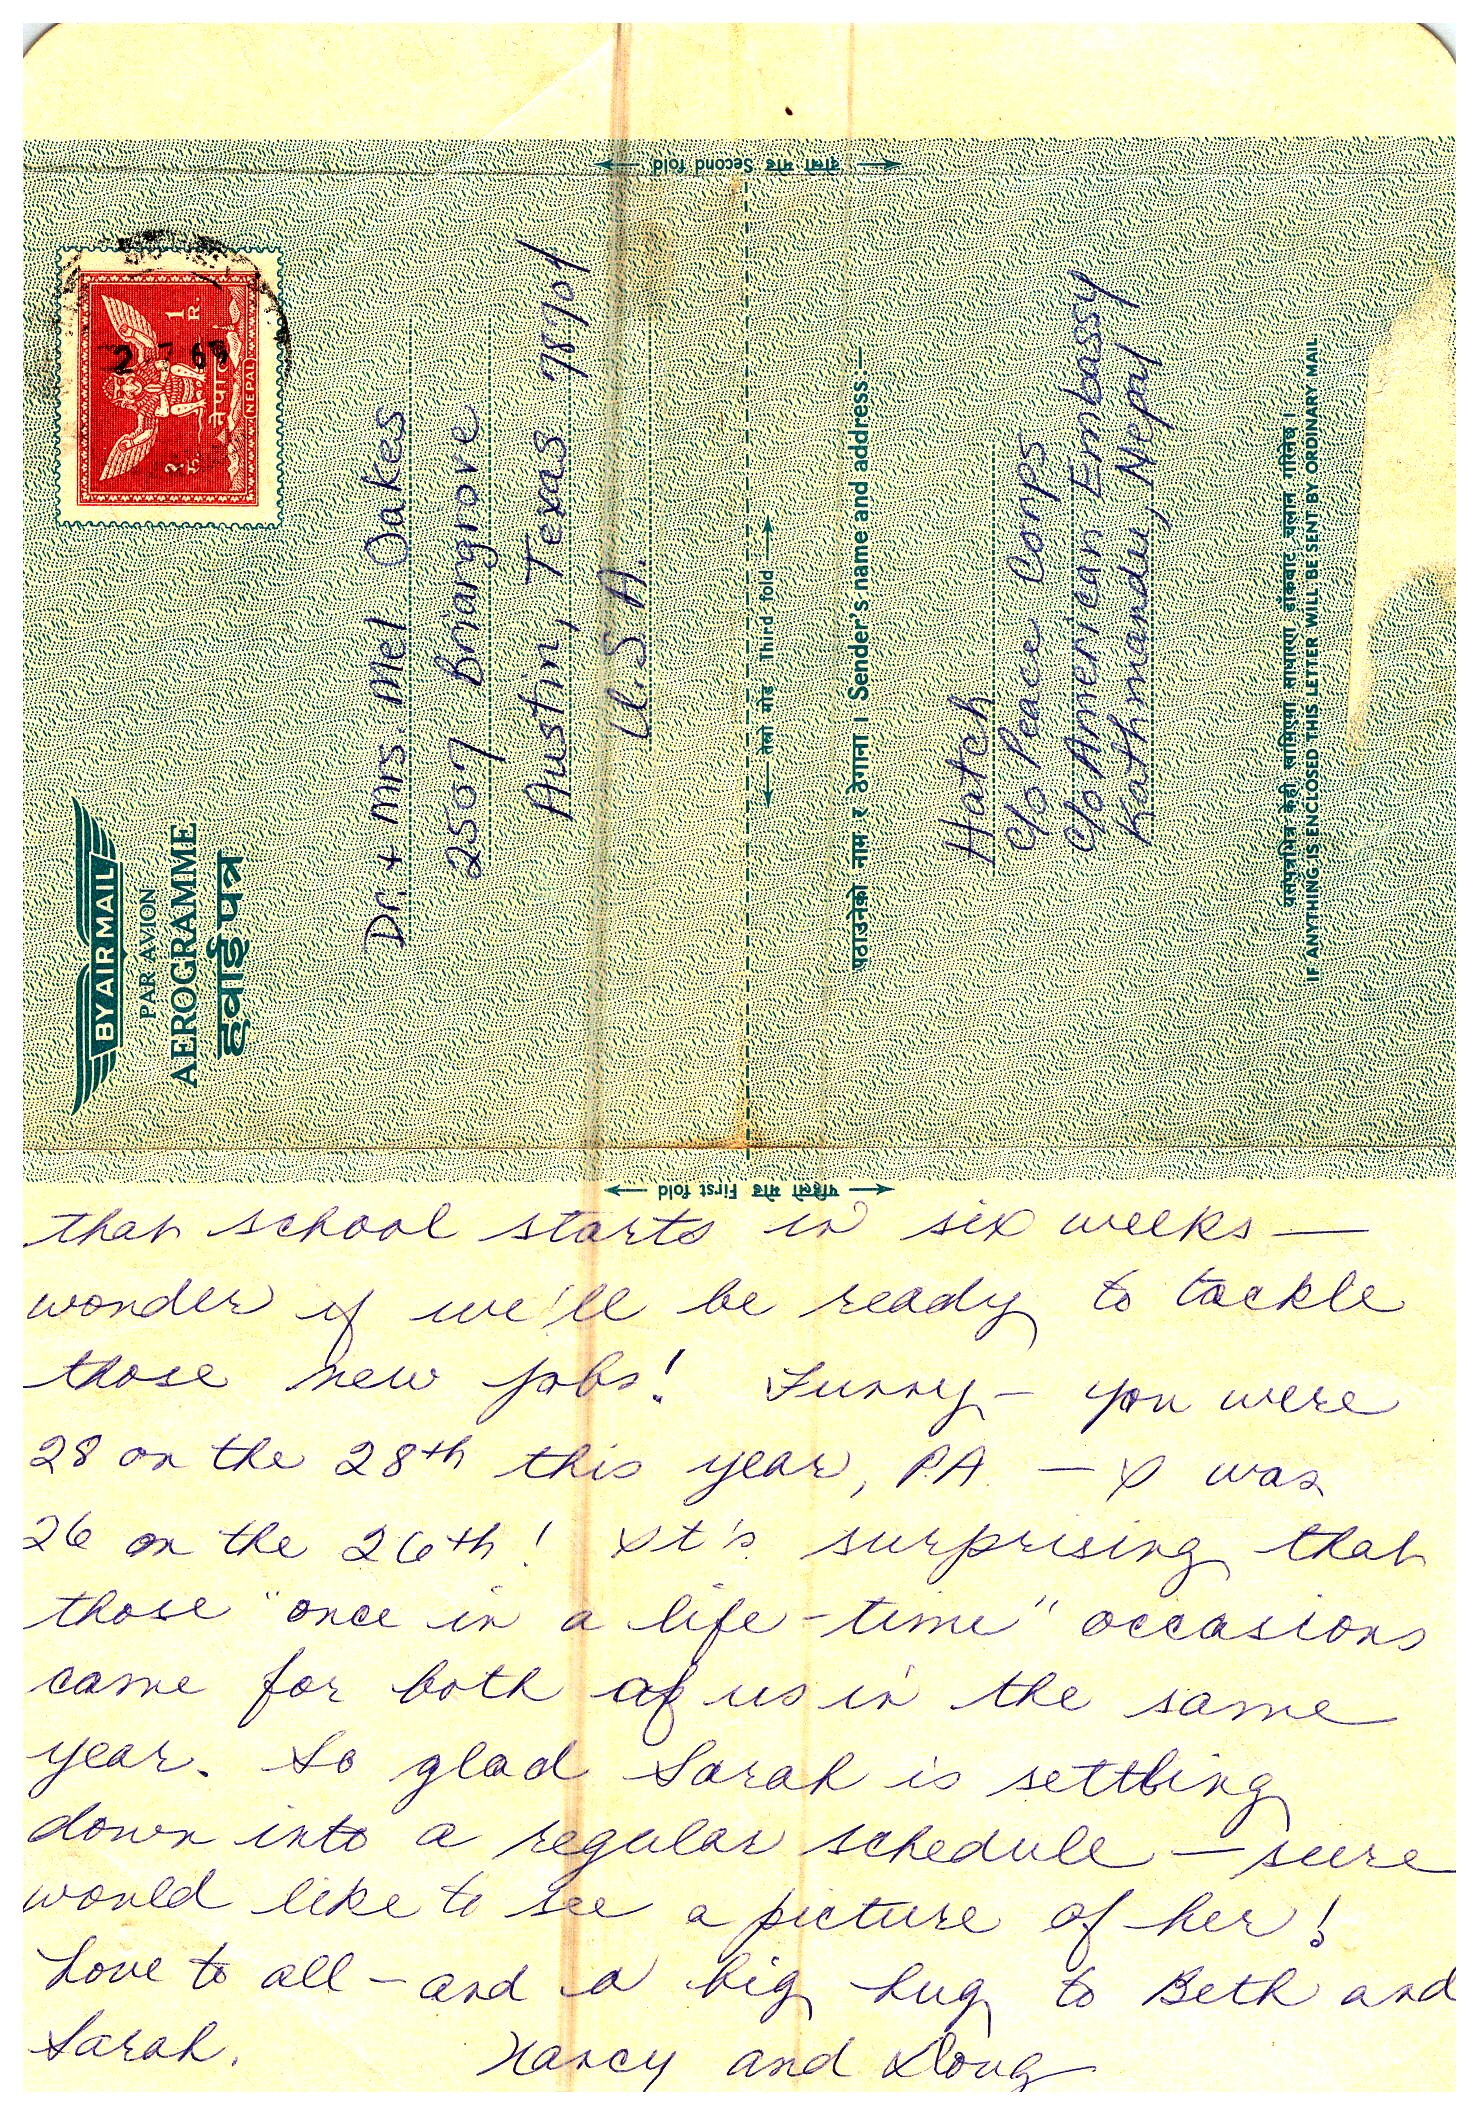 दोस्रो मोड Second fold
१ रु.
1 R.
नेपाल
(NEPAL)
2 7 69
BY AIR MAIL
PAR AVION
AEROGRAMME
हवाई पत्र
Dr. + Mrs. Mel Oakes
2507 Briargrove
Austin, Texas 78704
U.S.A.
तेस्रो मोड Third fold
पठाउनेको नाम र ठेगाना । Sender's name and address:—
Hatch
c/o Peace Corps
c/o American Embassy
Kathmandu, Nepal
यसपत्रभित्र केही खामिएमा साधारण डाँकबाट चलान गरिनेछ ।
IF ANYTHING IS ENCLOSED THIS LETTER WILL BE SENT BY ORDINARY MAIL
पहिलो मोड First fold
that school starts in six weeks —
wonder if we'll be ready to tackle
those new jobs! Funny — you were
28 on the 28th this year, P.A. — I was
26 on the 26th! It's surprising that
those "once in a life-time" occasions
came for both of us in the same
year. So glad Sarah is settling
down into a regular schedule — sure
would like to see a picture of her!
Love to all — and a big hug to Beth and
Sarah. Nancy and Doug